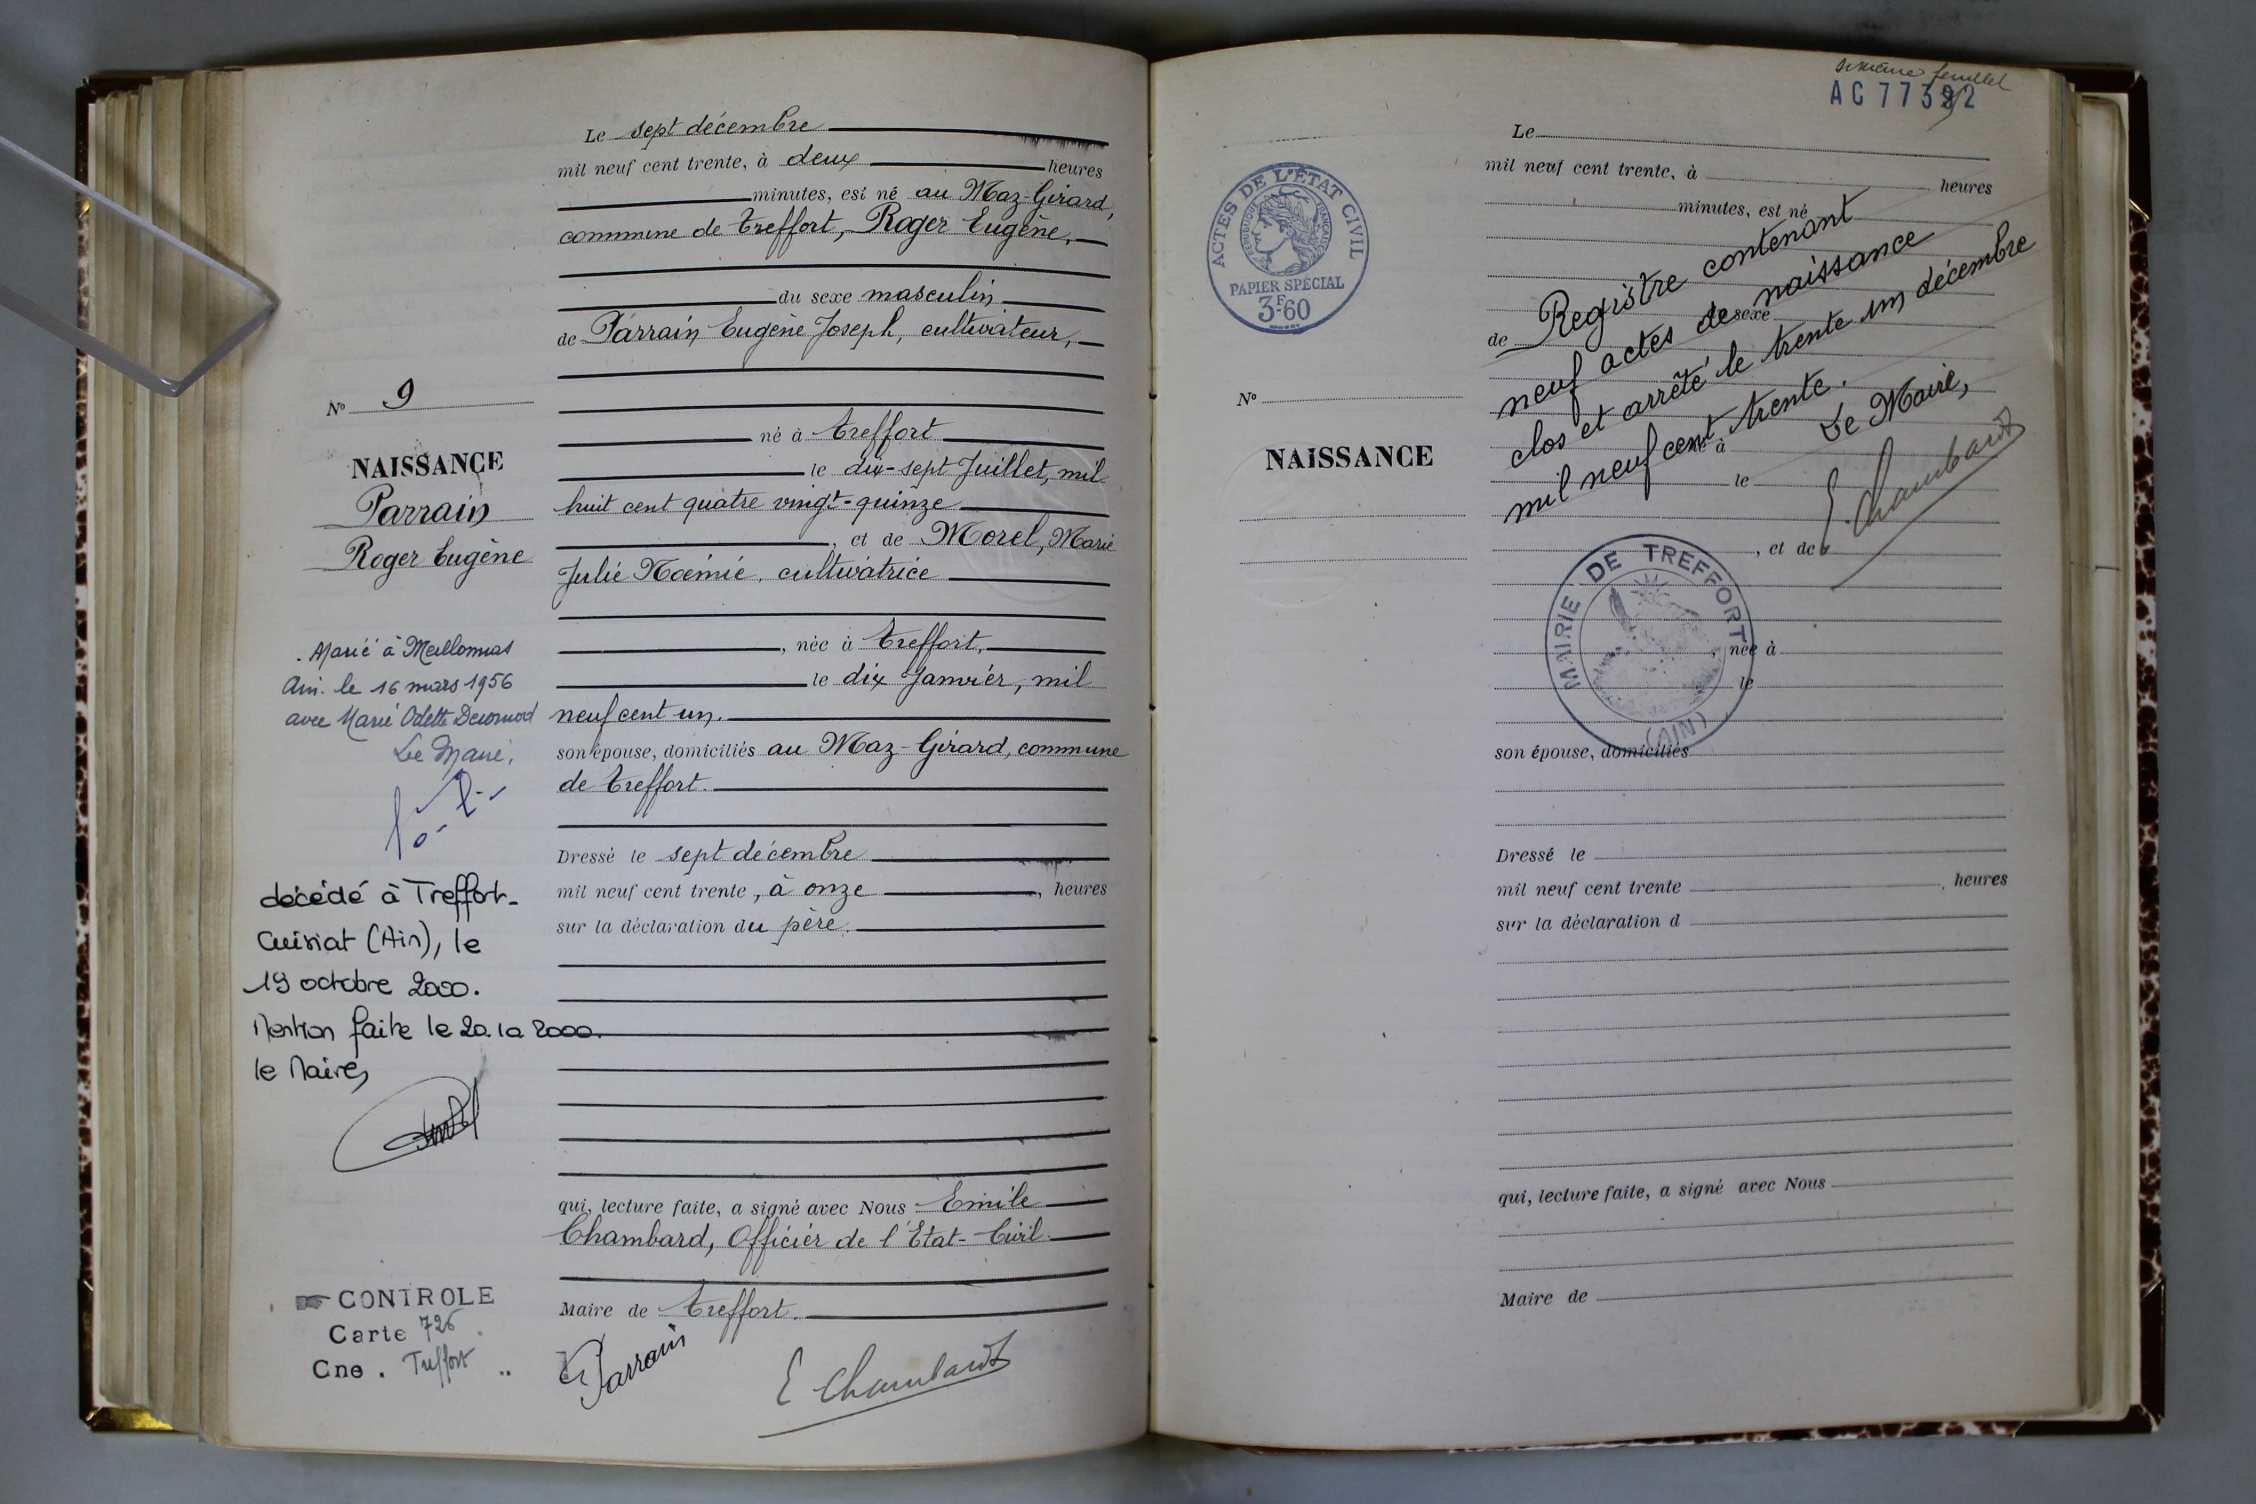 Le sept décembre
mil neuf cent trente, à deux heures
minutes, est né au Maz-Girard,
commune de Treffort, Roger Eugène,
du sexe masculin
de Parrain Eugène Joseph, cultivateur,
né à Treffort
le dix-sept Juillet, mil
huit cent quatre vingt-quinze
, et de Morel, Marie
Julie Noémie, cultivatrice
, née à Treffort,
le dix Janvier, mil
neuf cent un.
son épouse, domiciliés au Maz-Girard, commune
de Treffort.
Dressé le sept décembre
mil neuf cent trente, à onze, heures
sur la déclaration du père.
qui, lecture faite, a signé avec Nous Emile
Chambard, Officier de l'Etat-Civil.
Maire de Treffort.
Parrain
E Chambard
No 9
NAISSANCE
Parrain
Roger Eugène
Marié à Meillonnas
Ain. le 16 mars 1956
avec Marie Odette
Le Maire,
décédé à Treffort-
Cuisiat (Ain), le
19 octobre 2000.
Mention faite le 20.10 2000.
le Maire,
CONTROLE
Carte 726
Cne. Treffort
feuillet
AC 77392
ACTES DE L'ÉTAT CIVIL
RÉPUBLIQUE FRANÇAISE
PAPIER SPÉCIAL
3F60
No
NAISSANCE
Le
mil neuf cent trente, à heures
minutes, est né
du sexe
de
né à
le
, et de
, née à
le
son épouse, domiciliés
Dressé le
mil neuf cent trente, heures
sur la déclaration d
qui, lecture faite, a signé avec Nous
Maire de
Registre contenant
neuf actes de naissance
clos et arrêté le trente un décembre
mil neuf cent trente.
Le Maire,
E. Chambard
MAIRIE DE TREFFORT
(AIN)